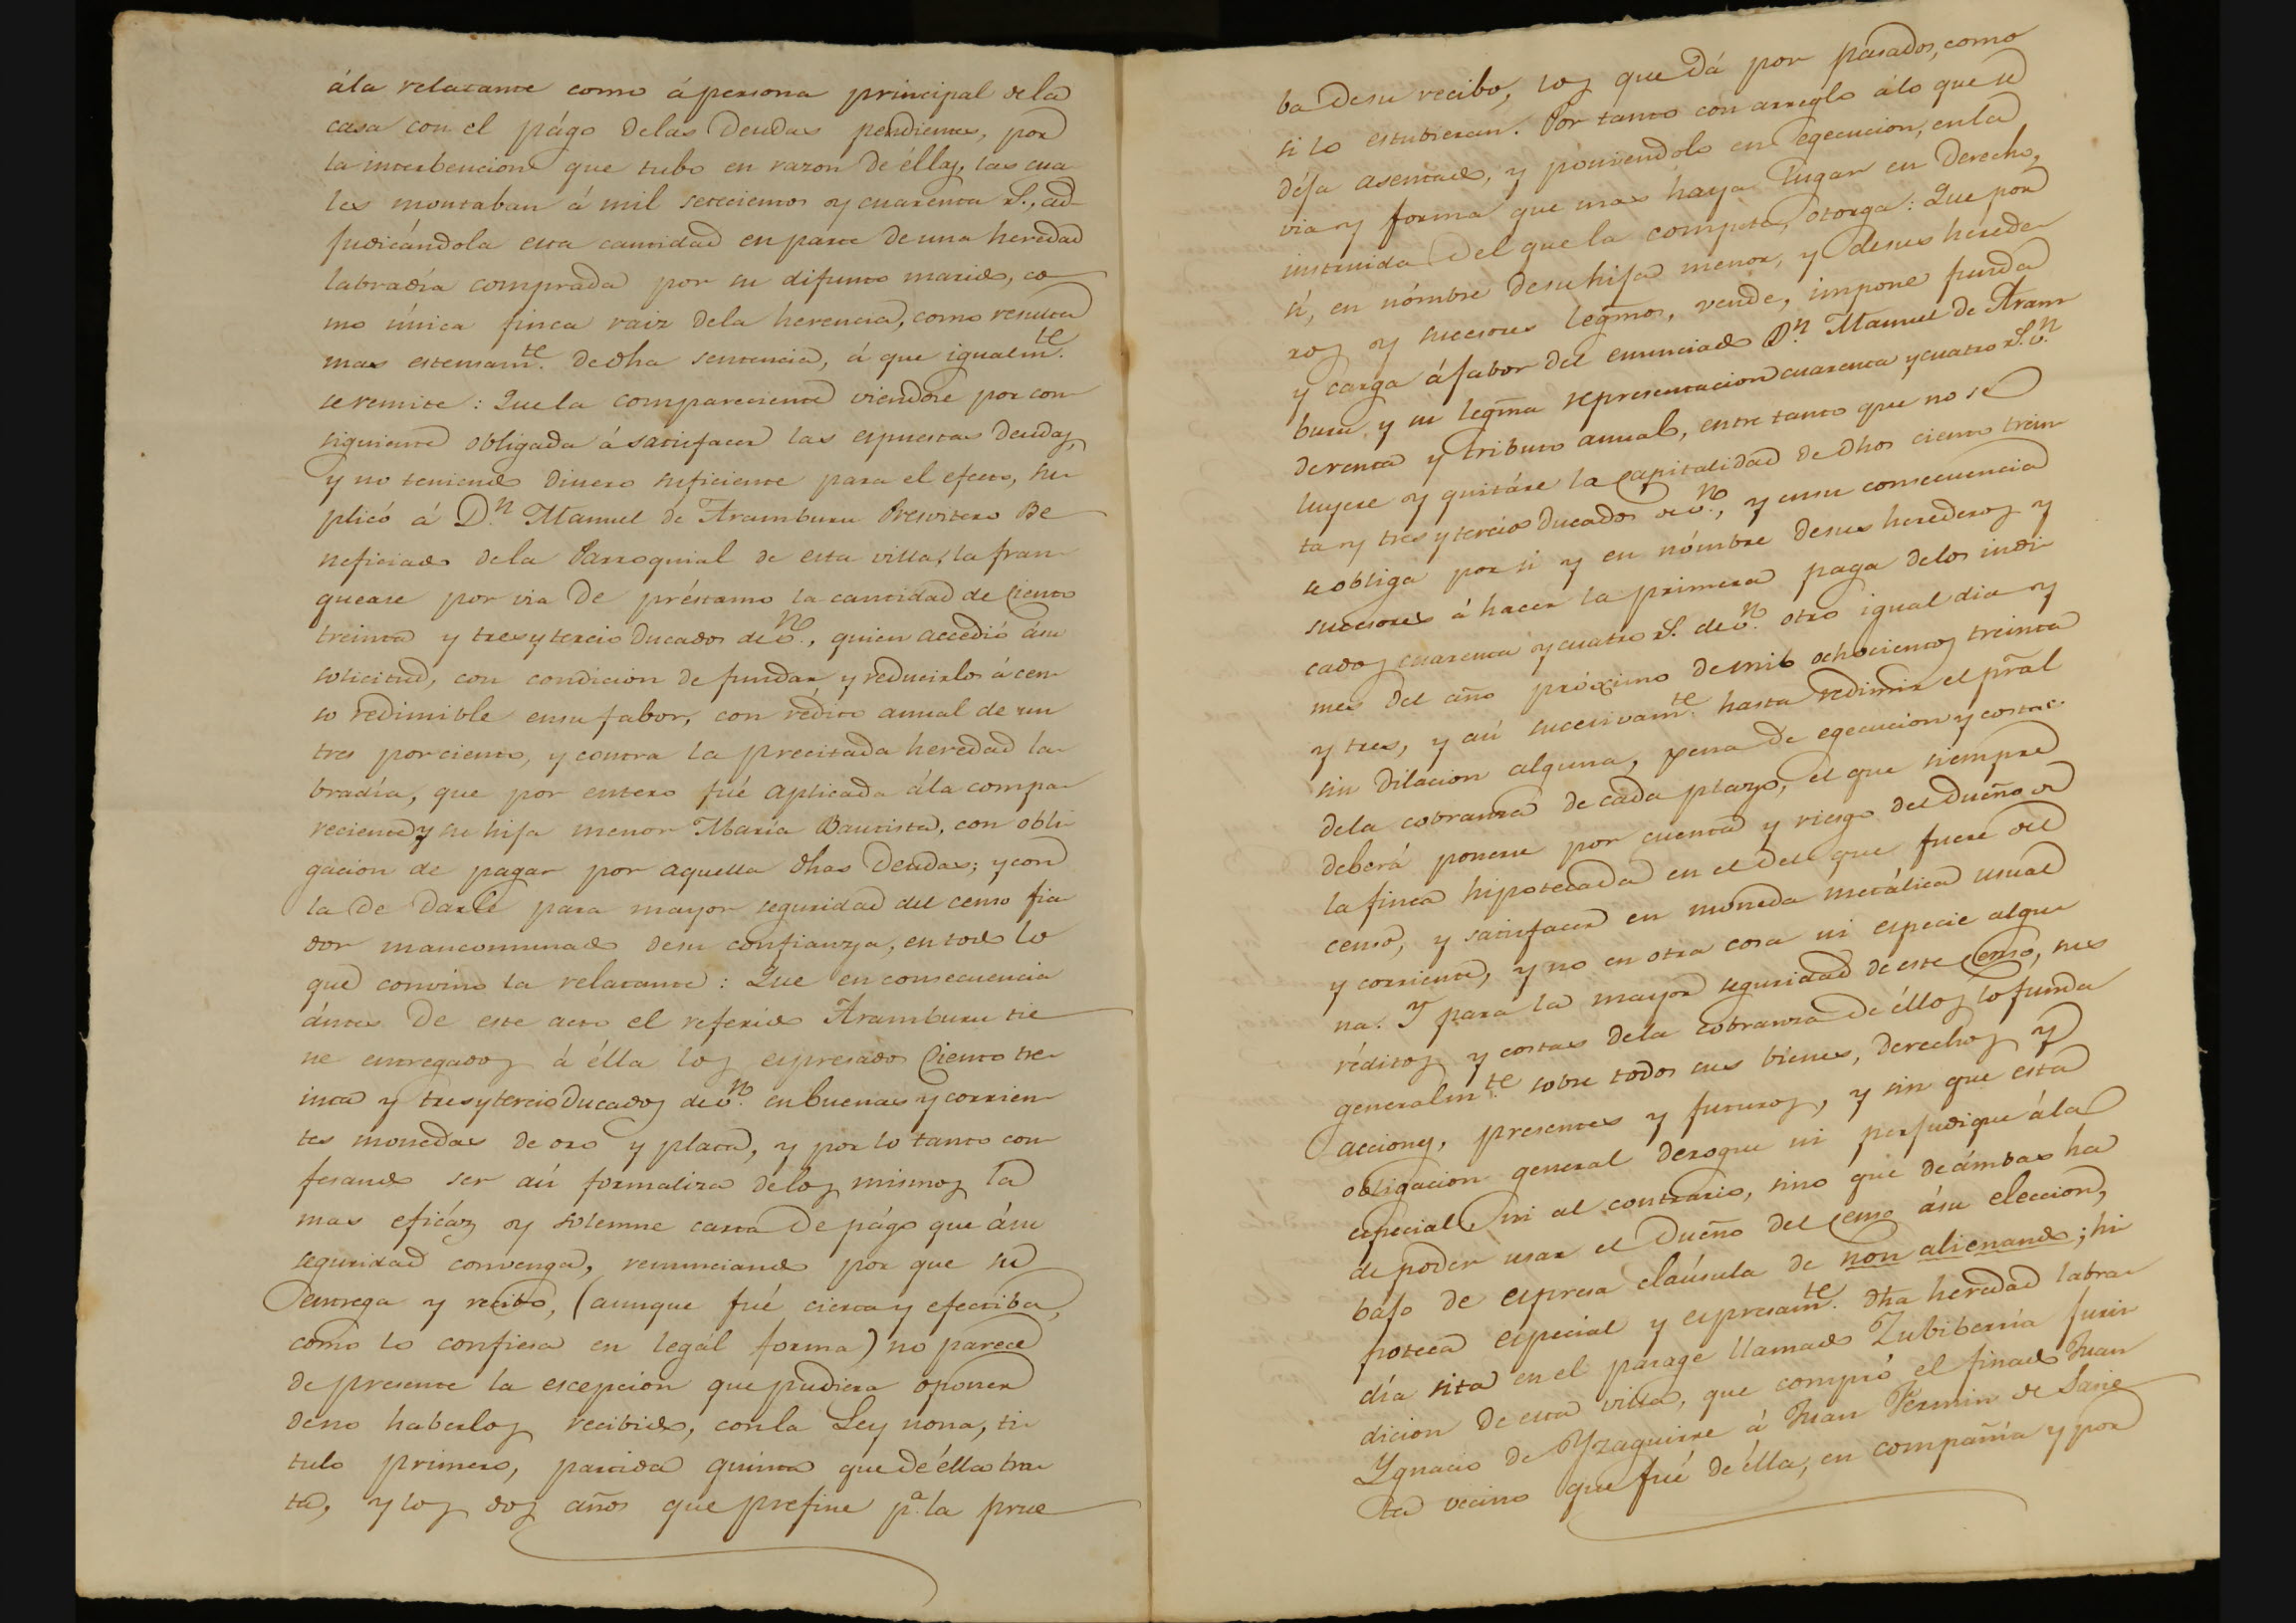 ála relatante como á persona principal dela
casa con el págo delas Deudas pendientes, por
la interbencion que tubo en razon de éllas, las cua-
les montaban á mil setecientos y cuarenta r.^s, ad-
judicándola esta cantidad en parte de una heredad
labradía comprada por su difunto marido, co-
mo única finca raiz dela herencia, como resulta
mas estensam.^te de dha sentencia, á que igualm.^te
se remite: Que la compareciente viendose por con-
siguiente obligada á satisfacer las espuestas deudas,
y no teniendo dinero suficiente para el efecto, su-
plicó á D.^n Manuel de Aramburu Presvitero Be-
neficiado dela Parroquial de esta villa, la fran-
quease por via de préstamo la cantidad de Ciento
treinta y tres y tercio Ducados de v.^n, quien accedió ásu
solicitud, con condicion de fundar y reducirlos á cen-
so redimible ensu fabor, con rédito anual de un
tres por ciento, y contra la precitada heredad la-
bradía, que por entero fué aplicada ála compa-
reciente y su hija menor María Bautista, con obli-
gacion de pagar por aquella dhas Deudas; y con
la de darle para mayor seguridad del censo fia-
dor mancomunado desu confianza, en todo lo
que convino la relatante: Que en consecuencia
ántes de este acto el referido Aramburu tie-
ne entregados á élla los espresados Ciento tre-
inta y tres y tercio Ducados de v.^n en buenas y corrien-
tes monedas de oro y plata, y por lo tanto con-
fesando ser así formaliza delos mismos la
mas eficáz y solemne carta de págo que ásu
seguridad convenga, renunciando por que su
entrega y recibo, (aunque fué cierta y efectiba,
como lo confiesa en legál forma) no parece
de presente la escepcion que pudiera oponer
deno haberlos recibido, con la Ley nona, ti-
tulo primero, partida quinta que de élla tra-
ta, y los dos años que prefine p.^a la prue-
ba desu recibo, los que dá por pasados, como
si lo estubieran. Por tanto con arreglo álo que se
déja asentado, y poniendolo en egecucion, en la
via y forma que mas haya lugar en Derecho,
instruida del que la compete, otorga: Que por
sí, en nómbre desu hija menor, y desus herede-
ros y sucesores legmos, vende, impone funda
y carga á fabor del enunciado D.^n Manuel de Aram-
buru y su legma representacion cuarenta y cuatro r.^s v.^n
de renta y tributo anual, entre tanto que no se
luyere y quitáre la Capitalidad de dhos ciento trein-
ta y tres y tercio Ducados de v.^n, y ensu consecuencia
se obliga por sí y en nómbre desus herederos y
sucesores á hacer la primera paga delos indi-
cados cuarenta y cuatro r.^s de v.^n otro igual dia y
mes del año próximo de mil ochocientos treinta
y tres, y así sucesivam.^te hasta redimir el pral
sin dilacion alguna, pena de egecucion y costas
dela cobranza de cada plazo, el que siempre
deberá ponerse por cuenta y riesgo del dueño de
la finca hipotecada en el del que fuere del
censo, y satisfacer en moneda metálica usual
y corriente, y no en otra cosa ni especie algu-
na. Y para la mayor seguridad de este Censo, sus
réditos y costas dela cobranza de éllos lo funda
generalm.^te sobre todos sus bienes, derechos y
acciones, presentes y futuros, y sin que esta
obligacion general derogue ni perjudique ála
especial, ni al contrario, sino que de ámbas ha
de poder usar el Dueño del Censo ásu eleccion,
bajo de espresa claúsula de non alienando; hi-
poteca especial y espresam.^te dha heredad labra-
día sita en el parage llamado Zubiberria juris-
dicion de esta villa, que compró el finado Juan
Ygnacio de Yzaguirre á Juan Fermin de Sarie
ta vecino que fué de élla, en compañía y por